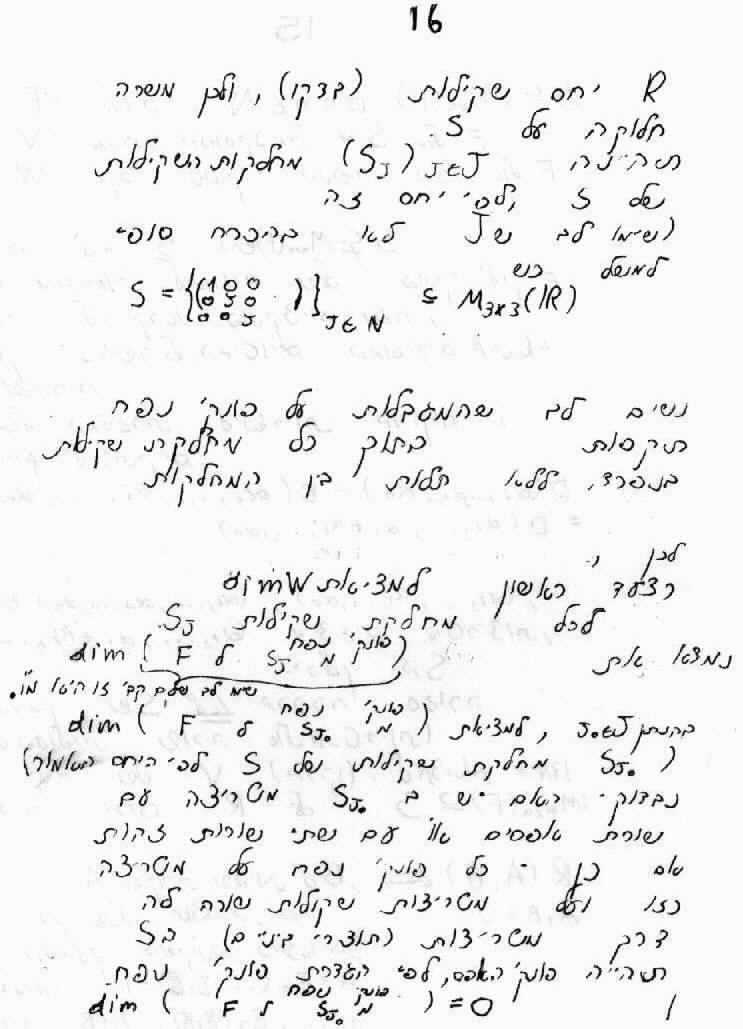 16
R יחס שקילות (בדקו), ולכן משרה
חלוקה על S.
תהיינה (S_J)_{J∈J} מחלקות השקילות
של S לפי יחס זה,
(שימו לב ש J לא בהכרח סופי
למשל כש
S = {(1 0 0 / 0 J 0 / 0 0 J)}_{J∈N} ⊆ M_{3x3}(R)
נשים לב שהמגבלות על פונק' נפח
תקפות בתוך כל מחלקת שקילות
בנפרד, ללא תלות בין המחלקות
לכן,
כצעד ראשון למציאת dim W
לכל מחלקת שקילות S_J
נמצא את dim (פונק' נפח מ S_J ל F)
שימו לב שלם קבי זו היא מ"ו.
בהנתן J_0∈J, למציאת dim (פונק' נפח מ S_{J_0} ל F)
(S_{J_0} מחלקת שקילות של S לפי היחס האמור)
נבדוק האם יש ב S_{J_0} מטריצה עם
שורת אפסים או עם שתי שורות זהות
אם כן - כל פונק' נפח על מטריצה
כזו ועל מטריצות שקולות שורה לה
דרך מטריצות (תוצרי ביניים) בS
תהייה פונק' האפס, לפי הגדרת פונק' נפח
dim (פונק' נפח מ S_{J_0} ל F) = 0